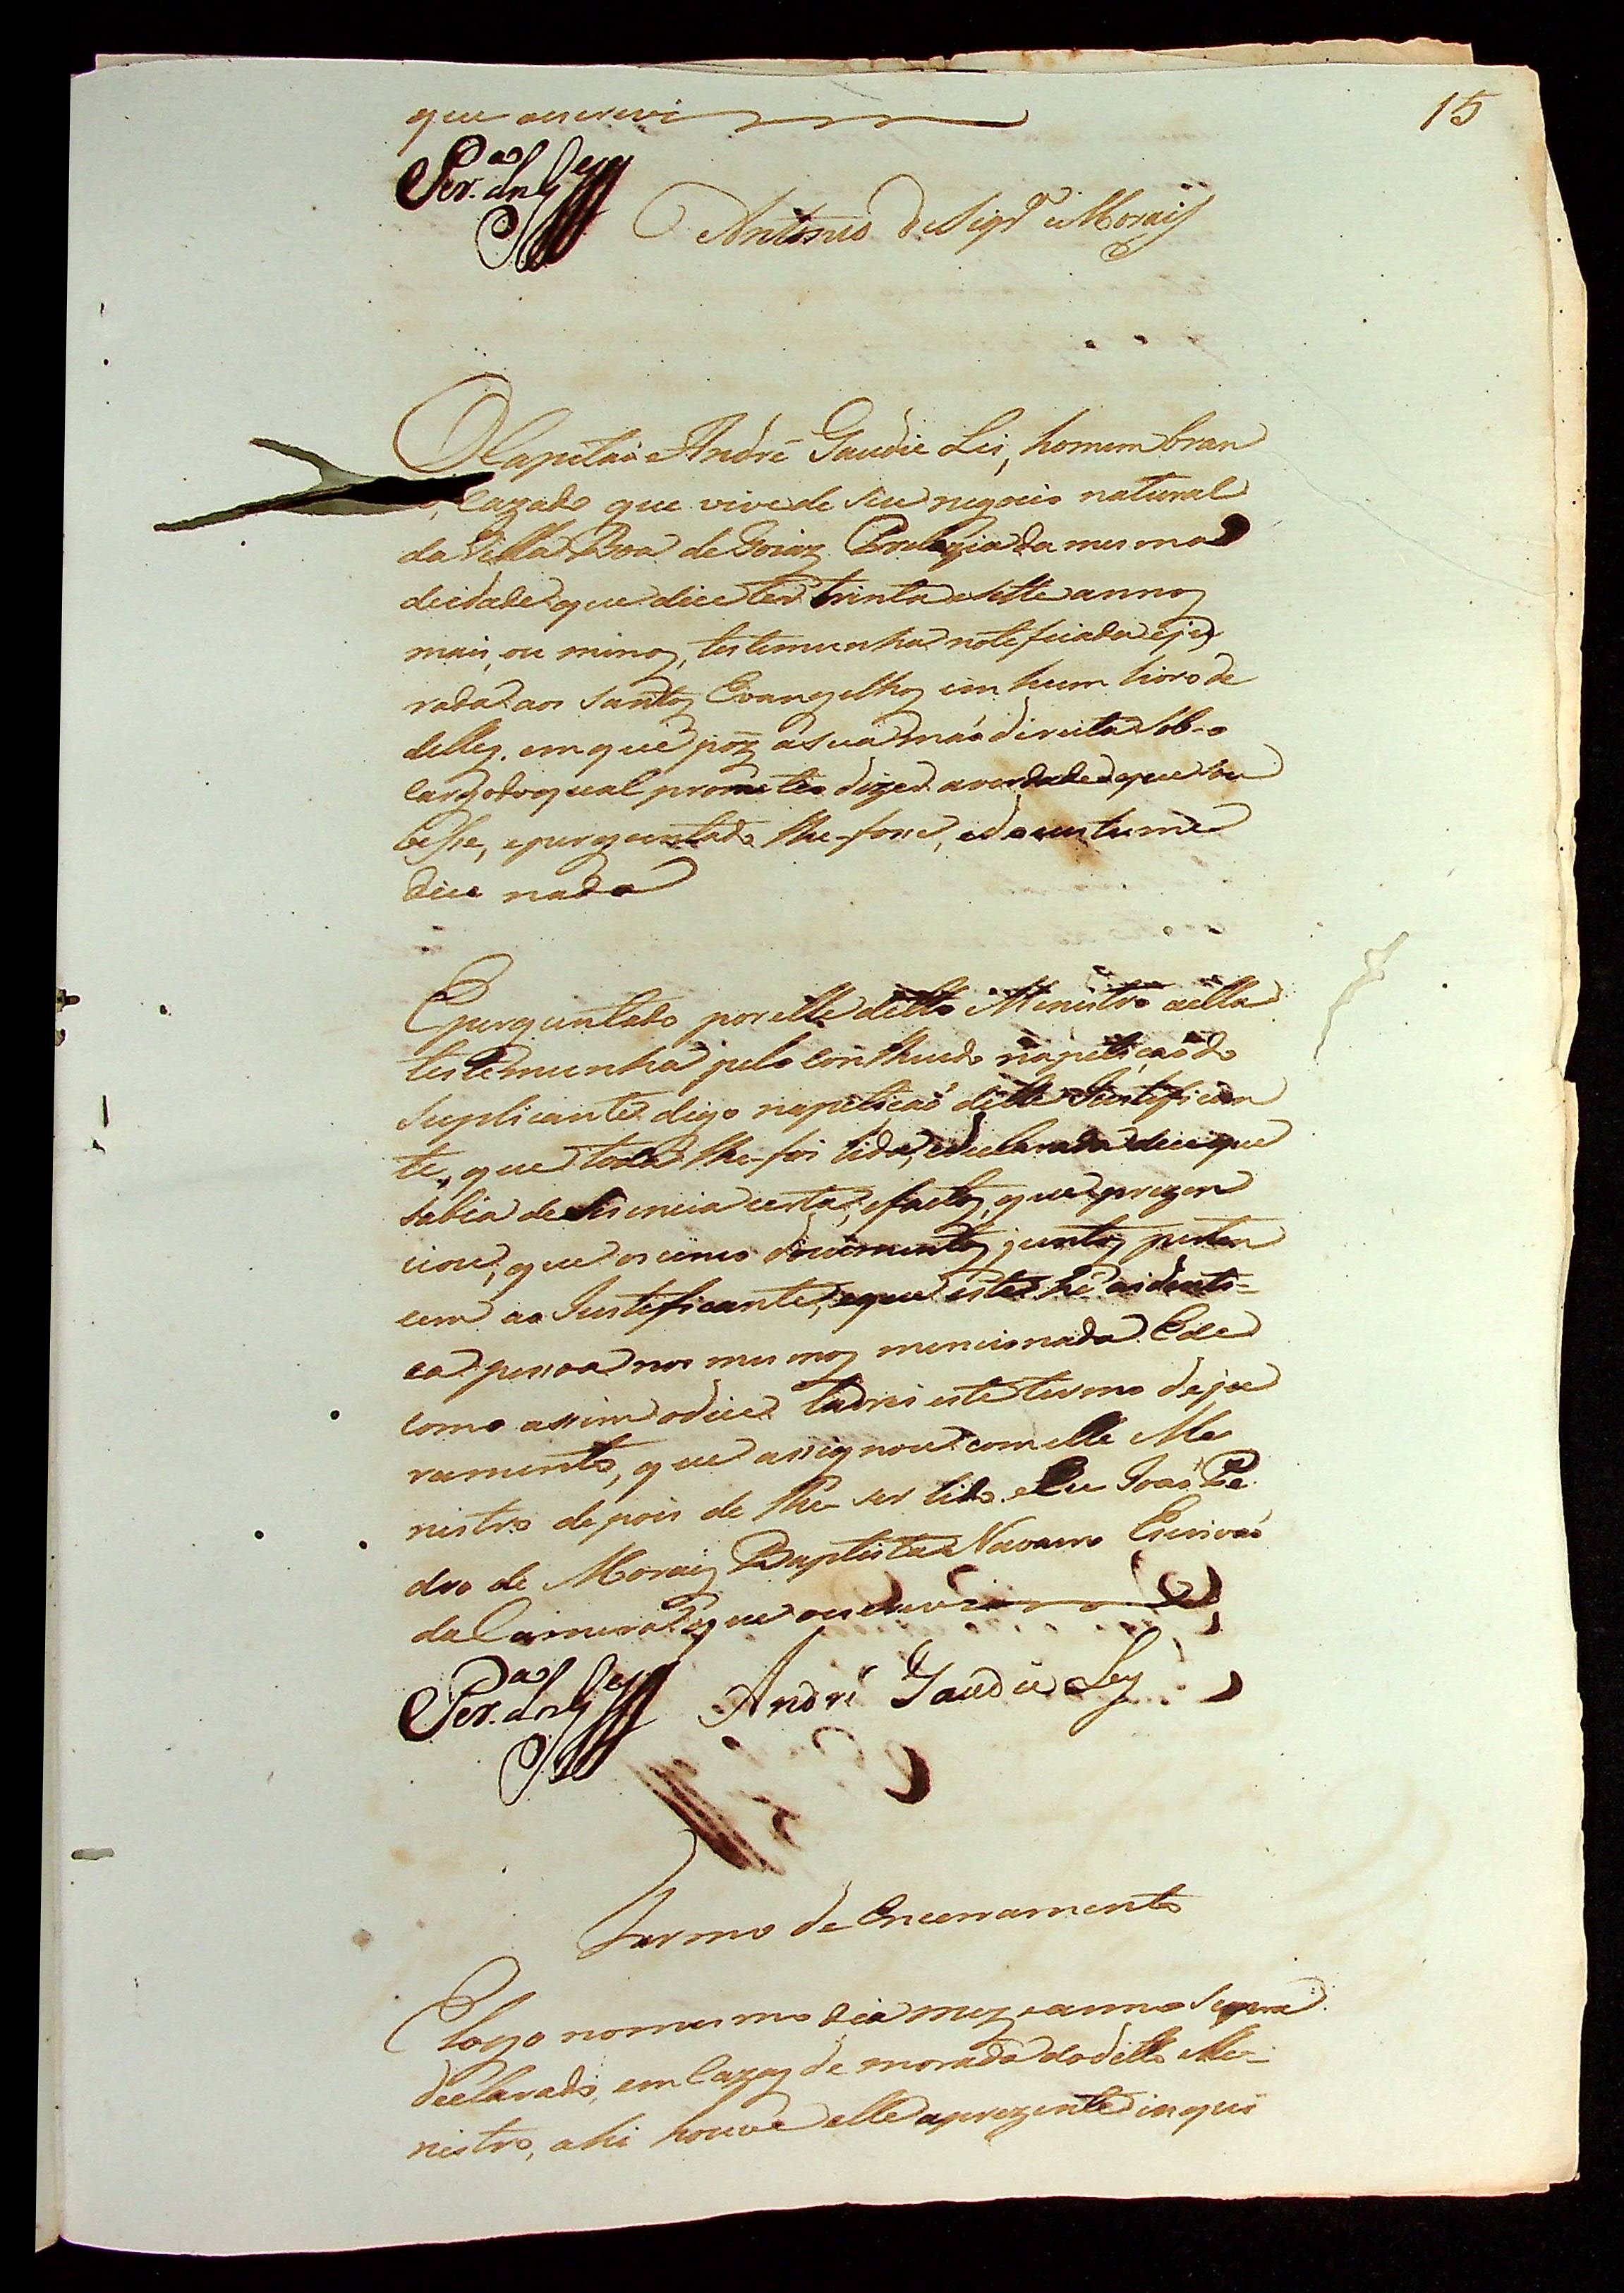 15
que oescrevi
Antonio de Siqrª e Moraiz
O Capitaõ Andrè Gaudie Lei, homem bran
cazado que vive de seu negocio natural
da Villa Boa de Goiaz Comarca da mesma
de idade que dice ter trinta e sette annos
mais, ou menos, testemunha noteficada eju
rada aos Santos Evangelhos em hum livro de
delles, em que pôz a sua maõ direita sob-o
cargo do qual prometeo dizer averdade do que sou
besse, eperguntado lhe-fosse, edo custume
dice nada
E perguntado por elle ditto Menistro aella
testemunha pelo contheudo napetiçaõ do
Suplicante digo napetiçaõ delle Justifican
te, que toda lhe-foi lida, edeclarada dice que
sabia de siencia certa, efactos, que prezen
ciou, que os cinco documentos juntos perten
cem ao Justeficante, eque este hé aidenti-
ca pessoa nos mesmos mencionada. E de
como assim odice lavrei este termo deju
ramento, que assignou com elle Me
nistro depois de lhe ser lido. e Eu Joaõ Pe
dro de Moraiz Baptista Navarro Escrivaõ
da Camera que oescrevi
Andrè Gaudie Ley
Termo de Encerramento
E logo nomesmo dia mez eanno Supra
declarado, em Cazas de morada do ditto Me-
nistro, ahi houve elle aprezente inqui